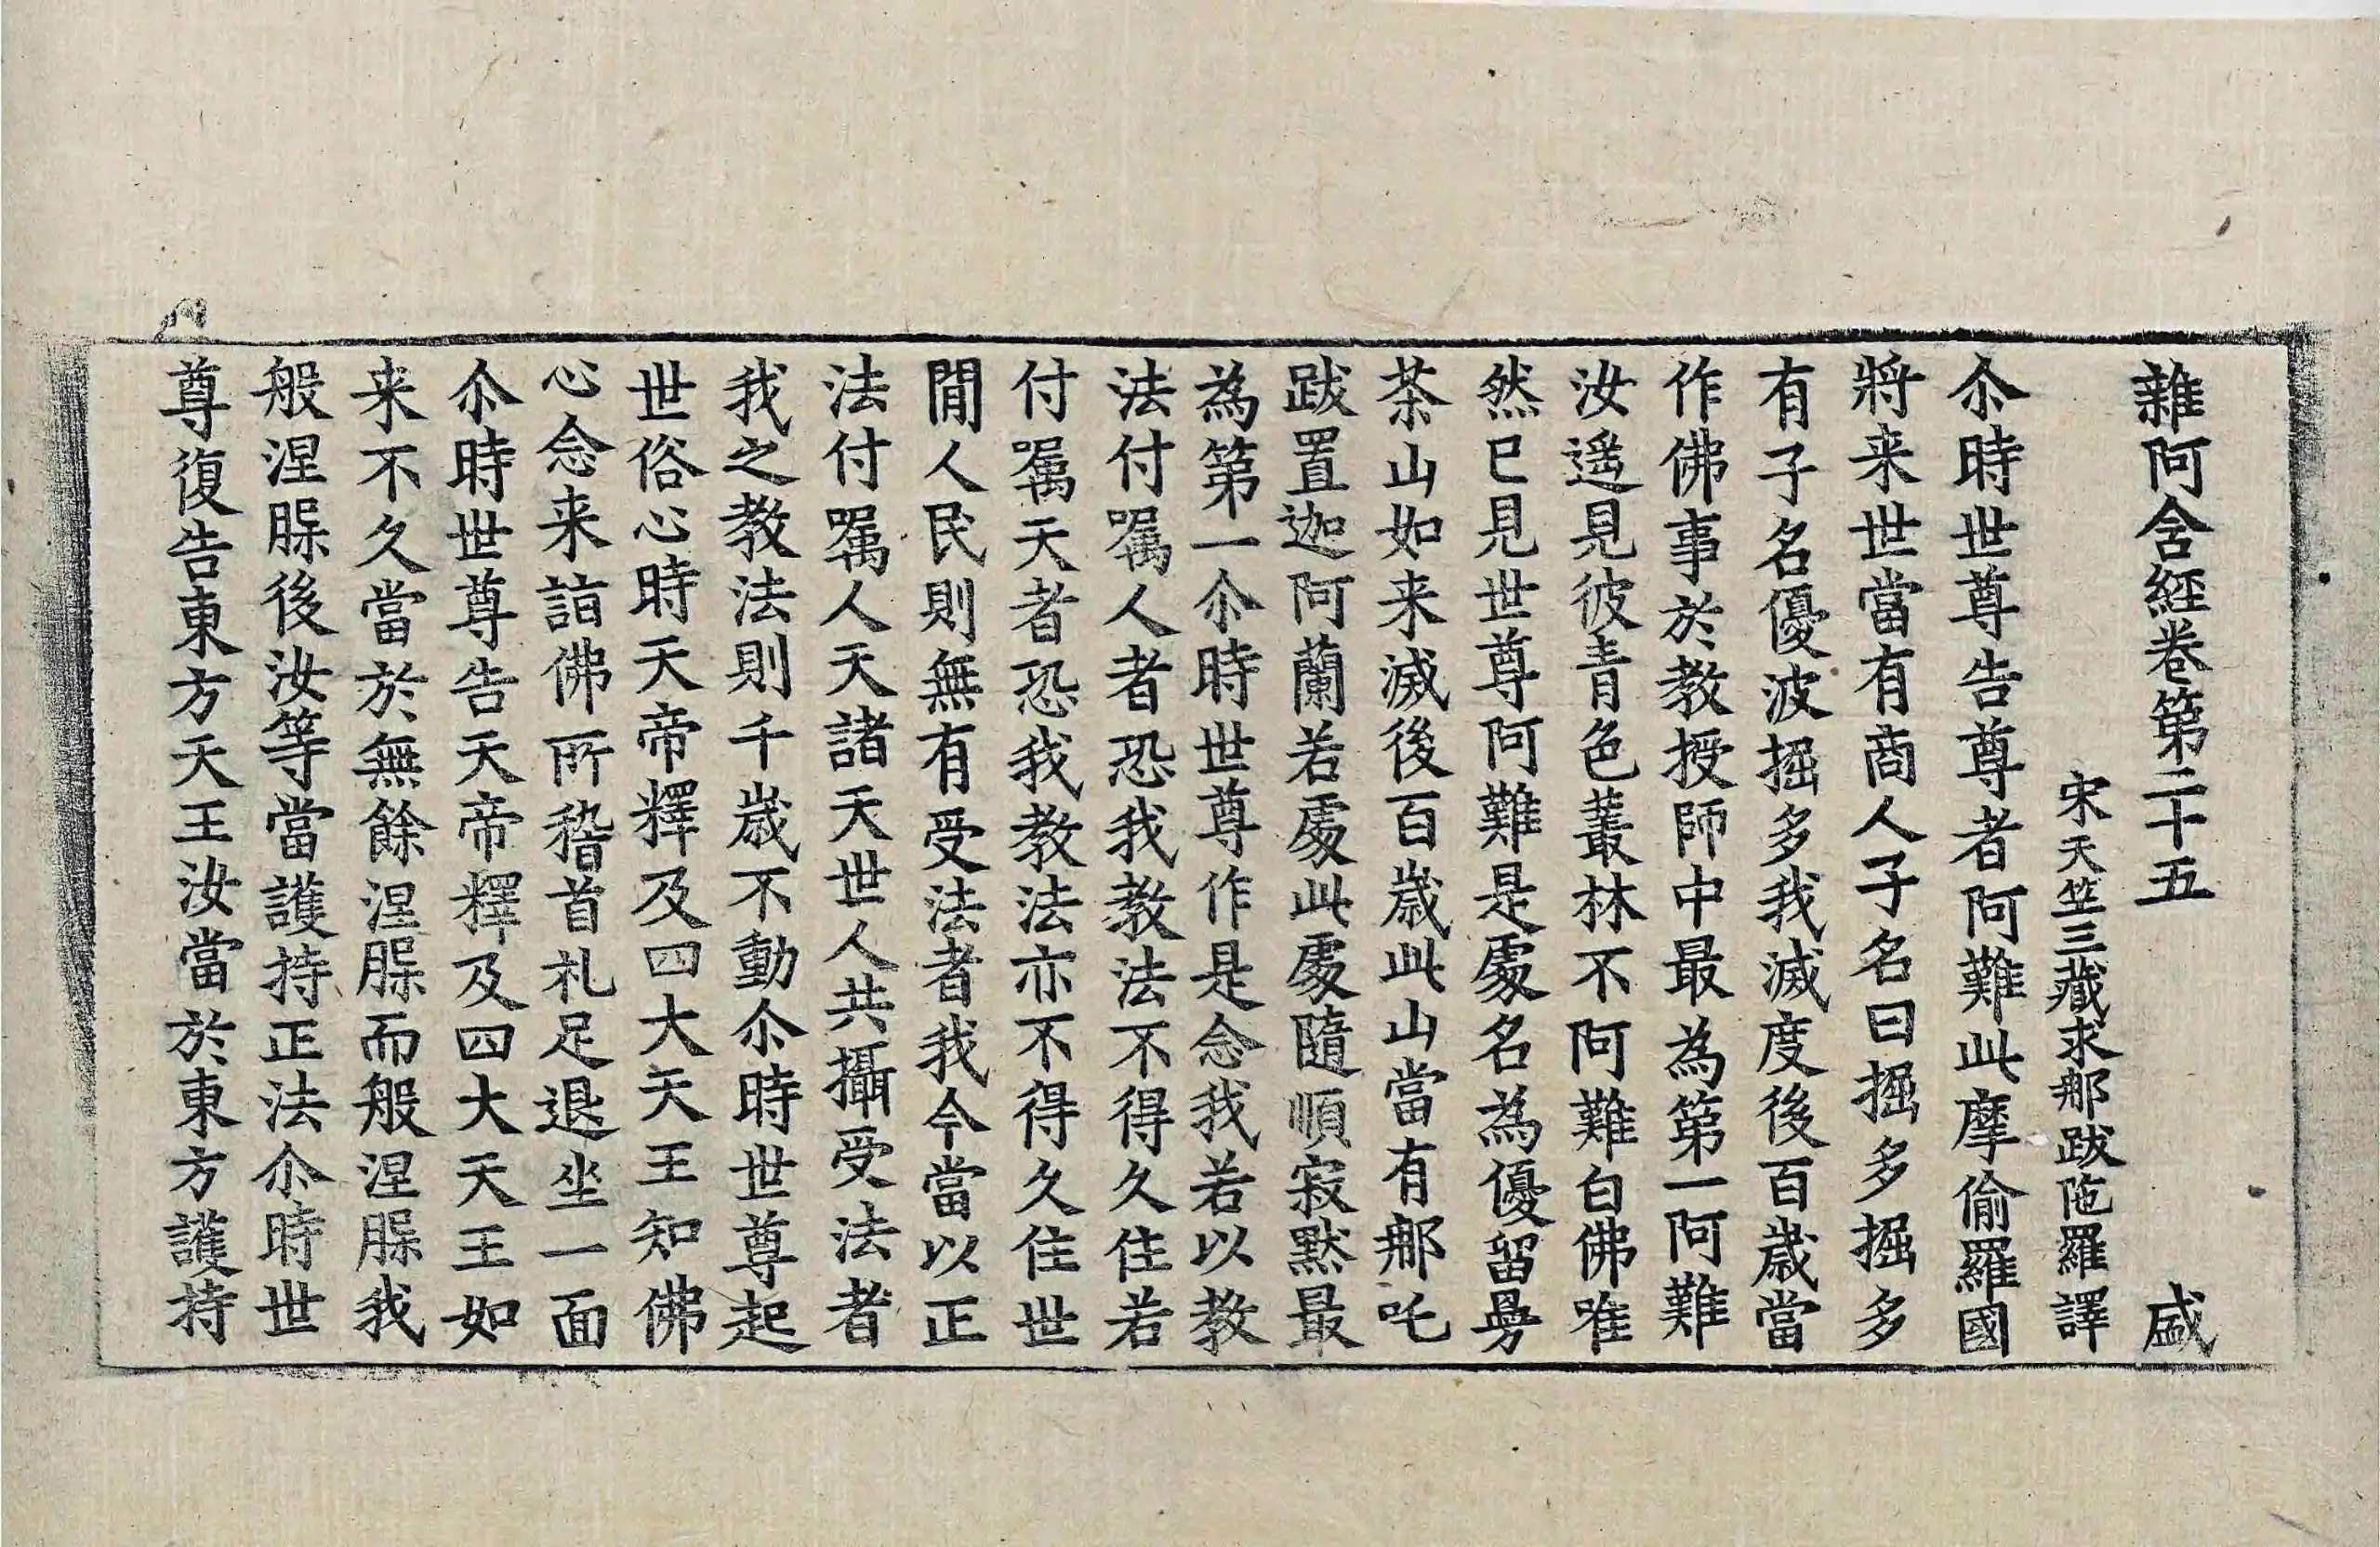 雜阿含經卷第二十五　盛
宋天竺三藏求那跋陁羅譯
尒時世尊告尊者阿難此摩偷羅國
將来世當有商人子名曰掘多掘多
有子名優波掘多我滅度後百歲當
作佛事於教授師中最為第一阿難
汝遥見彼青色叢林不阿難白佛唯
然已見世尊阿難是處名為優留曼
茶山如来滅後百歲此山當有那吒
跋置迦阿蘭若處此處隨順寂默最
為第一尒時世尊作是念我若以教
法付囑人者恐我教法不得久住若
付囑天者恐我教法亦不得久住世
閒人民則無有受法者我今當以正
法付囑人天諸天世人共攝受法者
我之教法則千歲不動尒時世尊起
世俗心時天帝釋及四大天王知佛
心念来詣佛所稽首礼足退坐一面
尒時世尊告天帝釋及四大天王如
来不久當於無餘涅槃而般涅槃我
般涅槃後汝等當護持正法尒時世
尊復告東方天王汝當於東方護持